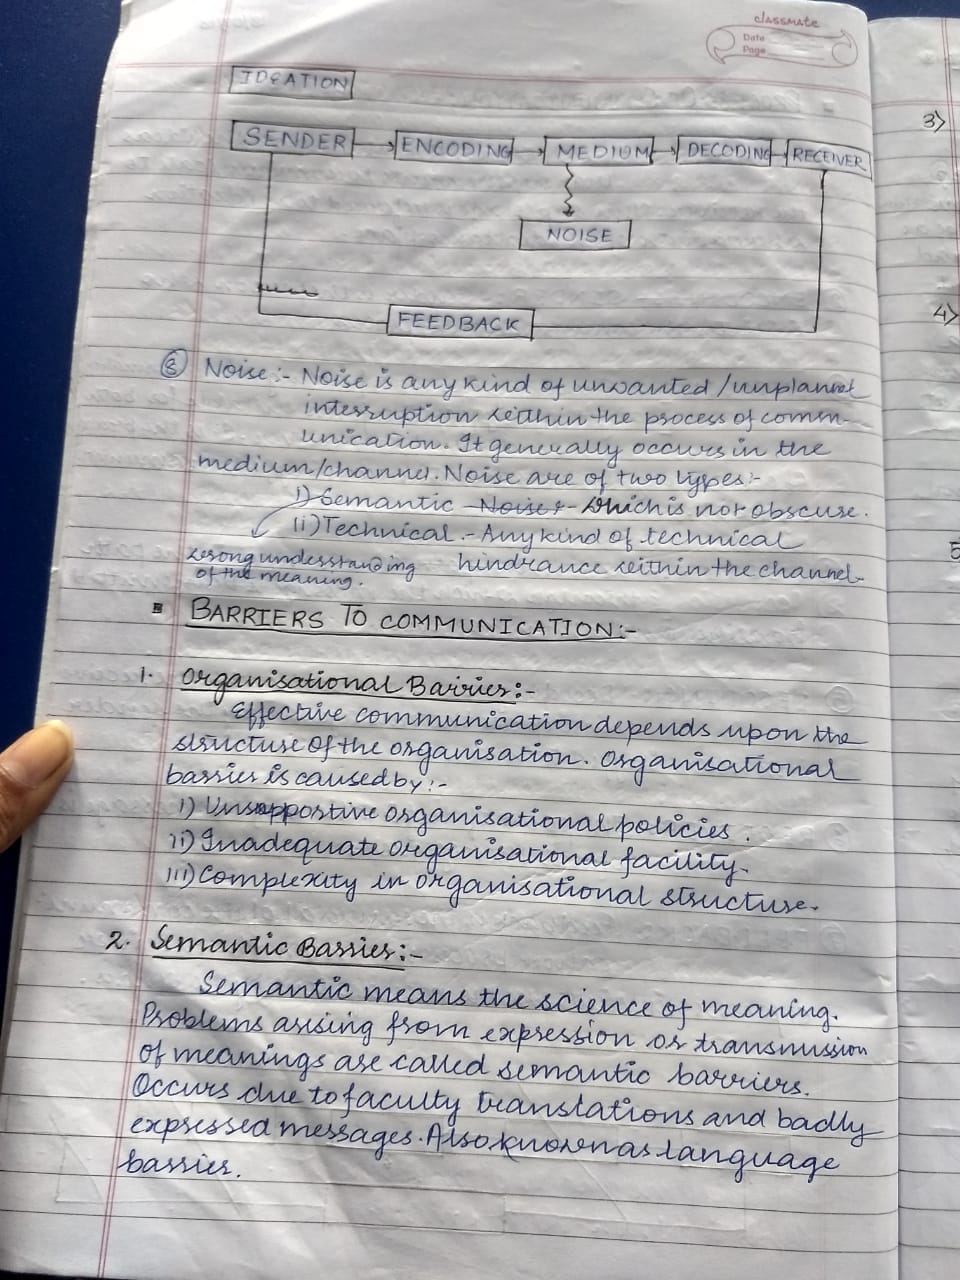 classmate
Date
Page
IDEATION
SENDER ENCODING MEDIUM DECODING RECEIVER
NOISE
FEEDBACK
⑧ Noise:- Noise is any kind of unwanted/unplanned
interruption within the process of comm-
unication. It generally occurs in the
medium/channel. Noise are of two types:-
i) Semantic Noise - which is not obscure.
ii) Technical - Any kind of technical
wrong understanding hindrance within the channel.
of the meaning.
BARRIERS TO COMMUNICATION:-
1. Organisational Barrier:-
Effective communication depends upon the
structure of the organisation. Organisational
barrier is caused by:-
i) Unsupportive organisational policies.
ii) Inadequate organisational facility.
iii) Complexity in organisational structure.
2. Semantic Barrier:-
Semantic means the science of meaning.
Problems arising from expression or transmission
of meanings are called semantic barriers.
Occurs due to faculty translations and badly
expressed messages. Also known as language
barrier.
3>
4>
5